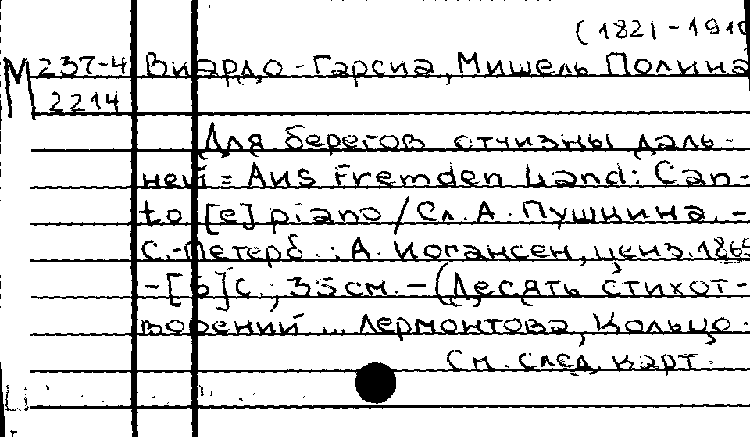 (1821-1910
М 237-4 Виардо-Гарсиа, Мишель Полина
2214
Для берегов отчизны даль-
ней = Aus Fremden Land: Can-
to [e] piano / Сл. А. Пушкина. -
С.-Петерб.: А. Иогансен, ценз. 1865
- [6] с.; 35 см. - (Десять стихот-
ворений ... Лермонтова, Кольцо-
См. след. карт.